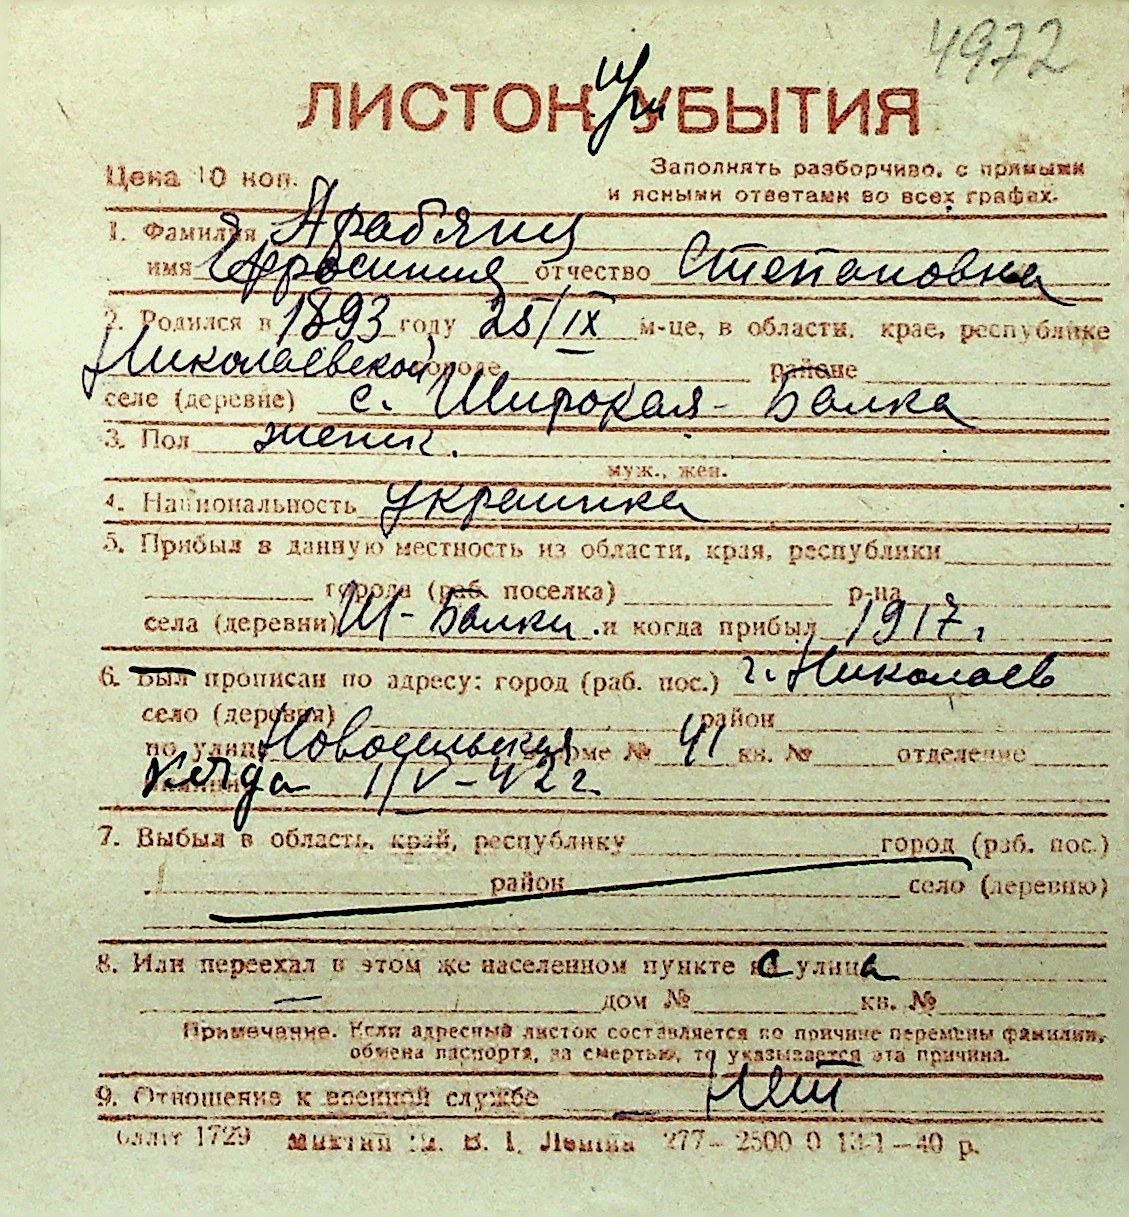 4972
ЛИСТОК УБЫТИЯ
Цена 10 коп.
Заполнять разборчиво, с прямыми
и ясными ответами во всех графах.
1. Фамилия Арабянц
имя Ефросиния отчество Степановна
2. Родился в 1893 году 25/IX м-це, в области, крае, республике
Николаевской городе районе
селе (деревне) с. Широкая-Балка
3. Пол женск.
муж., жен.
4. Национальность украинка
5. Прибыл в данную местность из области, края, республики
города (раб. поселка) р-на
села (деревни) Ш-Балки и когда прибыл 1917.
6. Был прописан по адресу: город (раб. пос.) г. Николаев
село (деревня) район
по улице Новосельская доме № 41 кв. № отделение
когда 1/V-42 г.
7. Выбыл в область, край, республику город (раб. пос.)
район село (деревню)
8. Или переехал в этом же населенном пункте с улица
дом № кв. №
Примечание. Если адресный листок составляется по причине перемены фамилии,
обмена паспорта, за смертью, то указывается эта причина.
9. Отношение к военной службе Нет
1729 В. І. Леніна 277-2500 0 13-1-40 р.